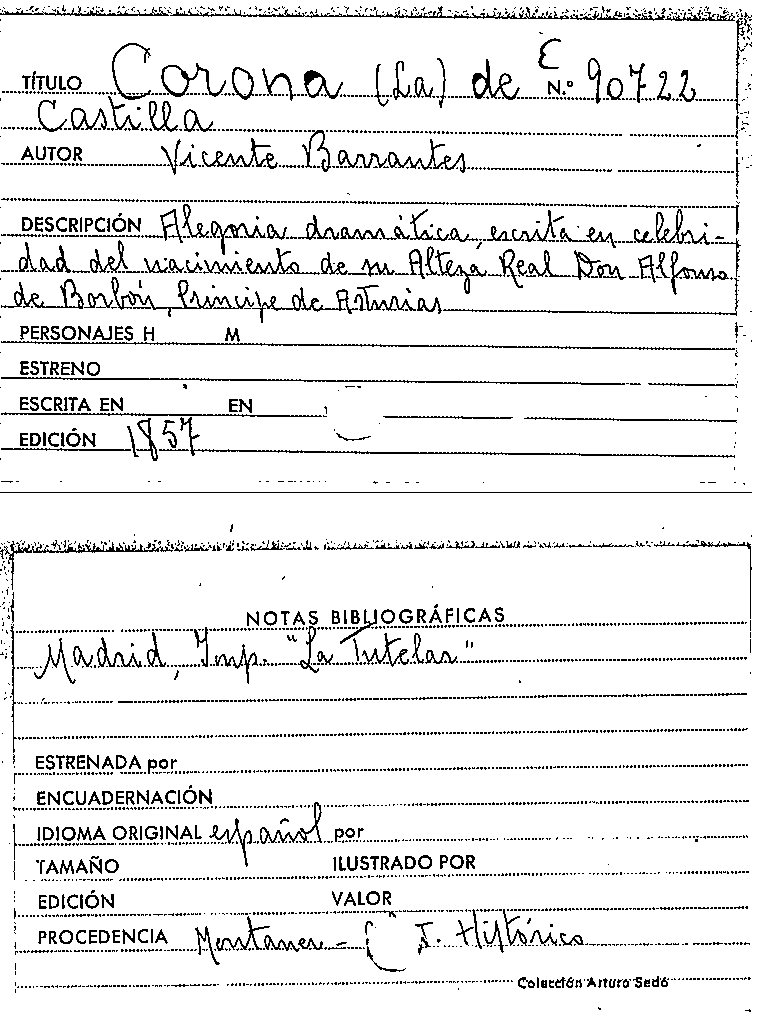 TÍTULO Corona (La) de E N.º 90722
Castilla
AUTOR Vicente Barrantes
DESCRIPCIÓN Alegoria dramática, escrita en celebri-
dad del nacimiento de su Alteza Real Don Alfonso
de Borbón, Principe de Asturias
PERSONAJES H M
ESTRENO
ESCRITA EN EN
EDICIÓN 1857
NOTAS BIBLIOGRÁFICAS
Madrid, Imp. "La Tutelar"
ESTRENADA por
ENCUADERNACIÓN
IDIOMA ORIGINAL español por
TAMAÑO ILUSTRADO POR
EDICIÓN VALOR
PROCEDENCIA Montaner - I. Histórico
Colección Arturo Sedó